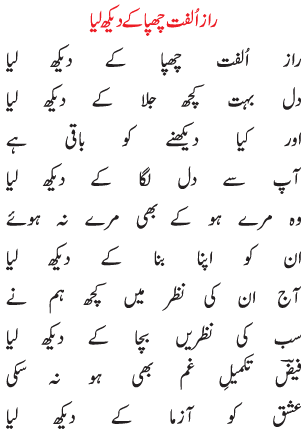 راز اُلفت چھپا کے دیکھ لیا
راز اُلفت چھپا کے دیکھ لیا
دل بہت کچھ جلا کے دیکھ لیا
اور کیا دیکھنے کو باقی ہے
آپ سے دل لگا کے دیکھ لیا
وہ مرے ہو کے بھی مرے نہ ہوئے
ان کو اپنا بنا کے دیکھ لیا
آج ان کی نظر میں کچھ ہم نے
سب کی نظریں بچا کے دیکھ لیا
فیضؔ تکمیلِ غم بھی ہو نہ سکی
عشق کو آزما کے دیکھ لیا